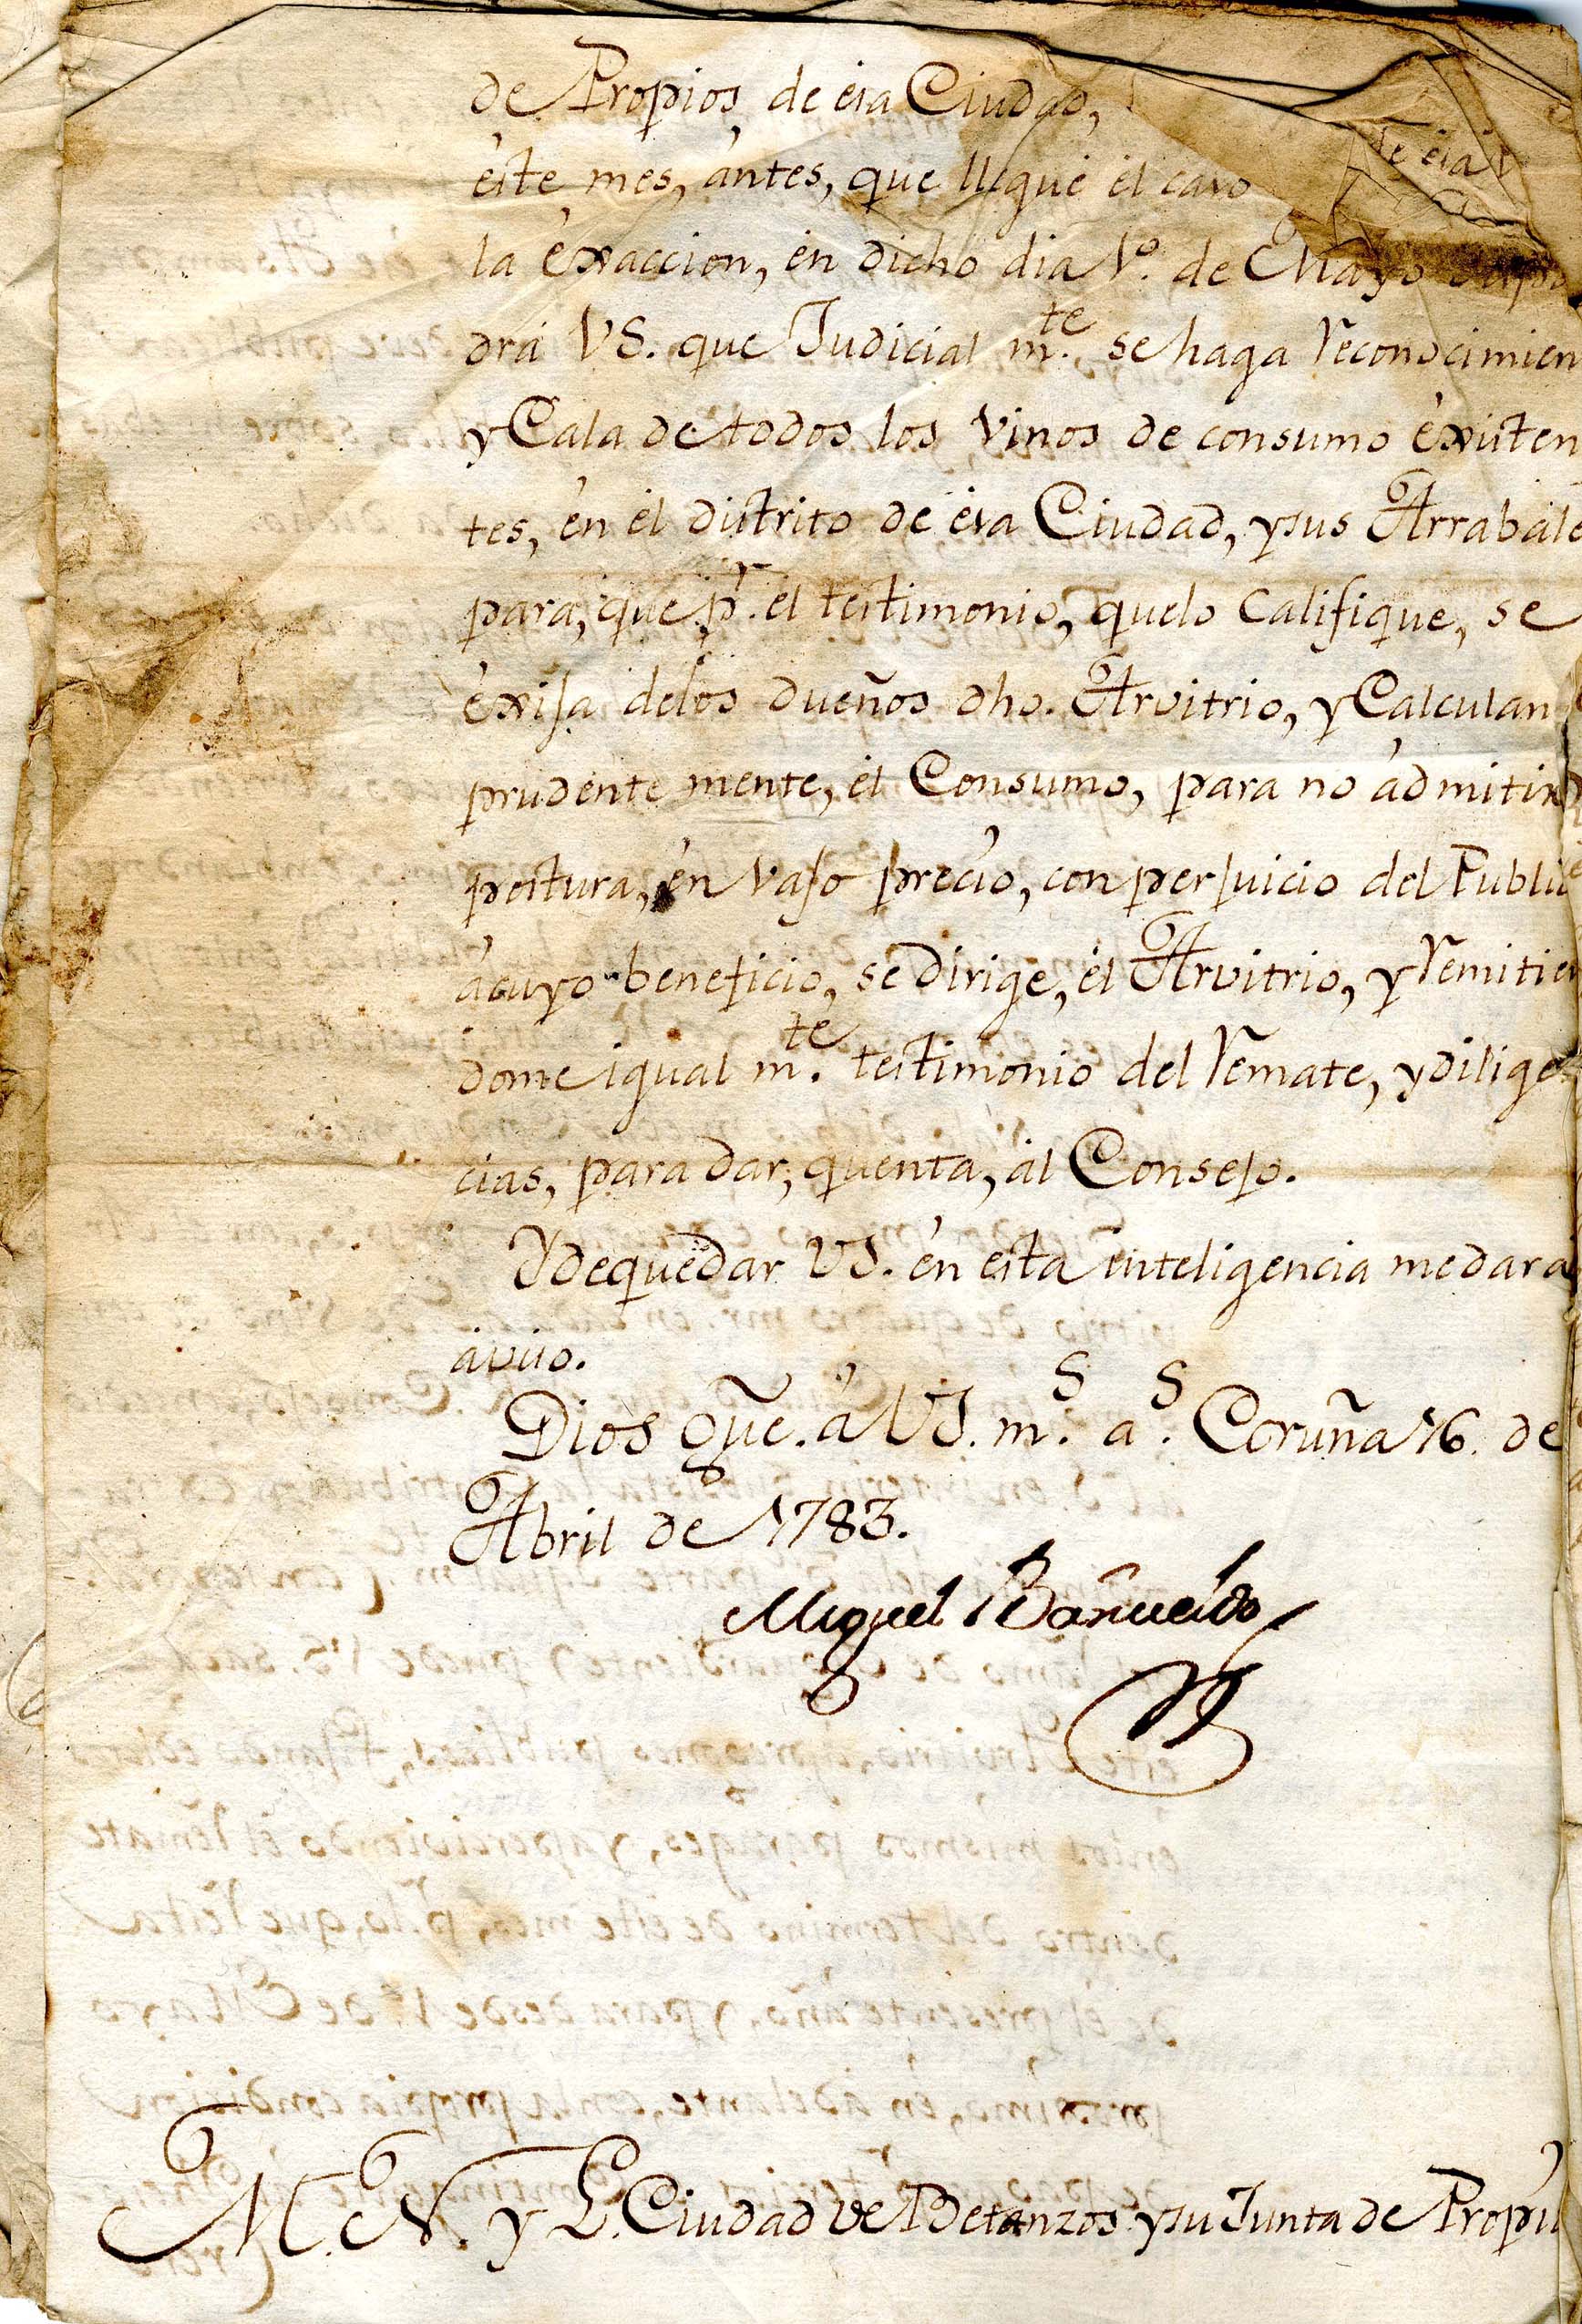 de Propios de esa Ciudad,
este mes, ántes, que llegué el caso
de esa
la éxaccion, én dicho dia 1º. de Mayo
drá VS. que Judicial m.te se haga reconocimien
y Cala de todos los Vinos de consumo éxisten
tes, én él distrito de ésa Ciudad, y sus Arrabále
para, que p.r él testimonio, quelo Califique, se
éxija delos dueños dho. Arvitrio, y Calculan
prudente mente, él Consumo, para no ádmitir
postura, én vajo precio, con perjuicio del Public
ácuyo beneficio, se dirige, él Arvitrio, y remitien
dome igual m.te testimonio del remate, y dilige
cias, para dar, quenta, ál Consejo.
Y de quedar VS. én esta inteligencia me dará
áviso.
Dios gũe. á VS. m.s a.s Coruña 16. de
Abril de 1783.
Miguel Bañuelos
M. N. y L. Ciudad de Betanzos y su Junta de Propi